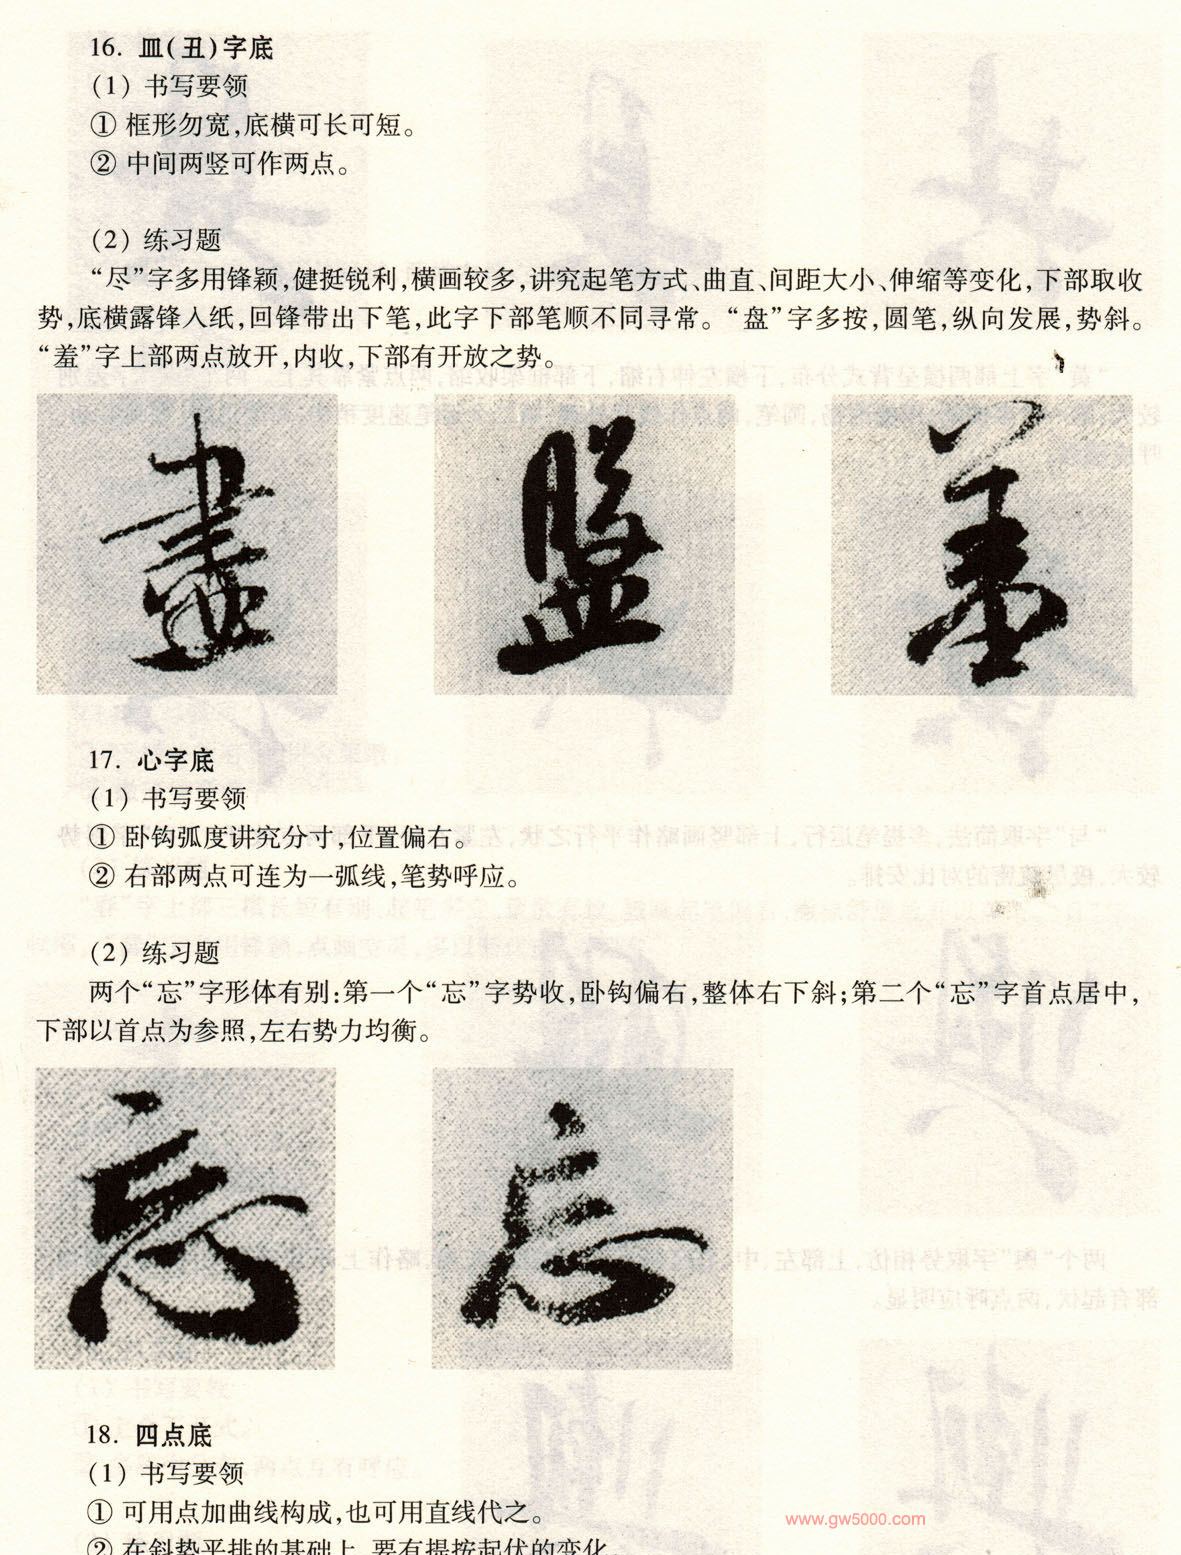 16. 皿(丑)字底
(1) 书写要领
① 框形勿宽,底横可长可短。
② 中间两竖可作两点。
(2) 练习题
“尽”字多用锋颖,健挺锐利,横画较多,讲究起笔方式、曲直、间距大小、伸缩等变化,下部取收
势,底横露锋入纸,回锋带出下笔,此字下部笔顺不同寻常。“盘”字多按,圆笔,纵向发展,势斜。
“羞”字上部两点放开,内收,下部有开放之势。
盡 盤 羞
17. 心字底
(1) 书写要领
① 卧钩弧度讲究分寸,位置偏右。
② 右部两点可连为一弧线,笔势呼应。
(2) 练习题
两个“忘”字形体有别:第一个“忘”字势收,卧钩偏右,整体右下斜;第二个“忘”字首点居中,
下部以首点为参照,左右势力均衡。
忘 忘
18. 四点底
(1) 书写要领
① 可用点加曲线构成,也可用直线代之。
② 在斜势平排的基础上,要有提按起伏的变化。
www.gw5000.com